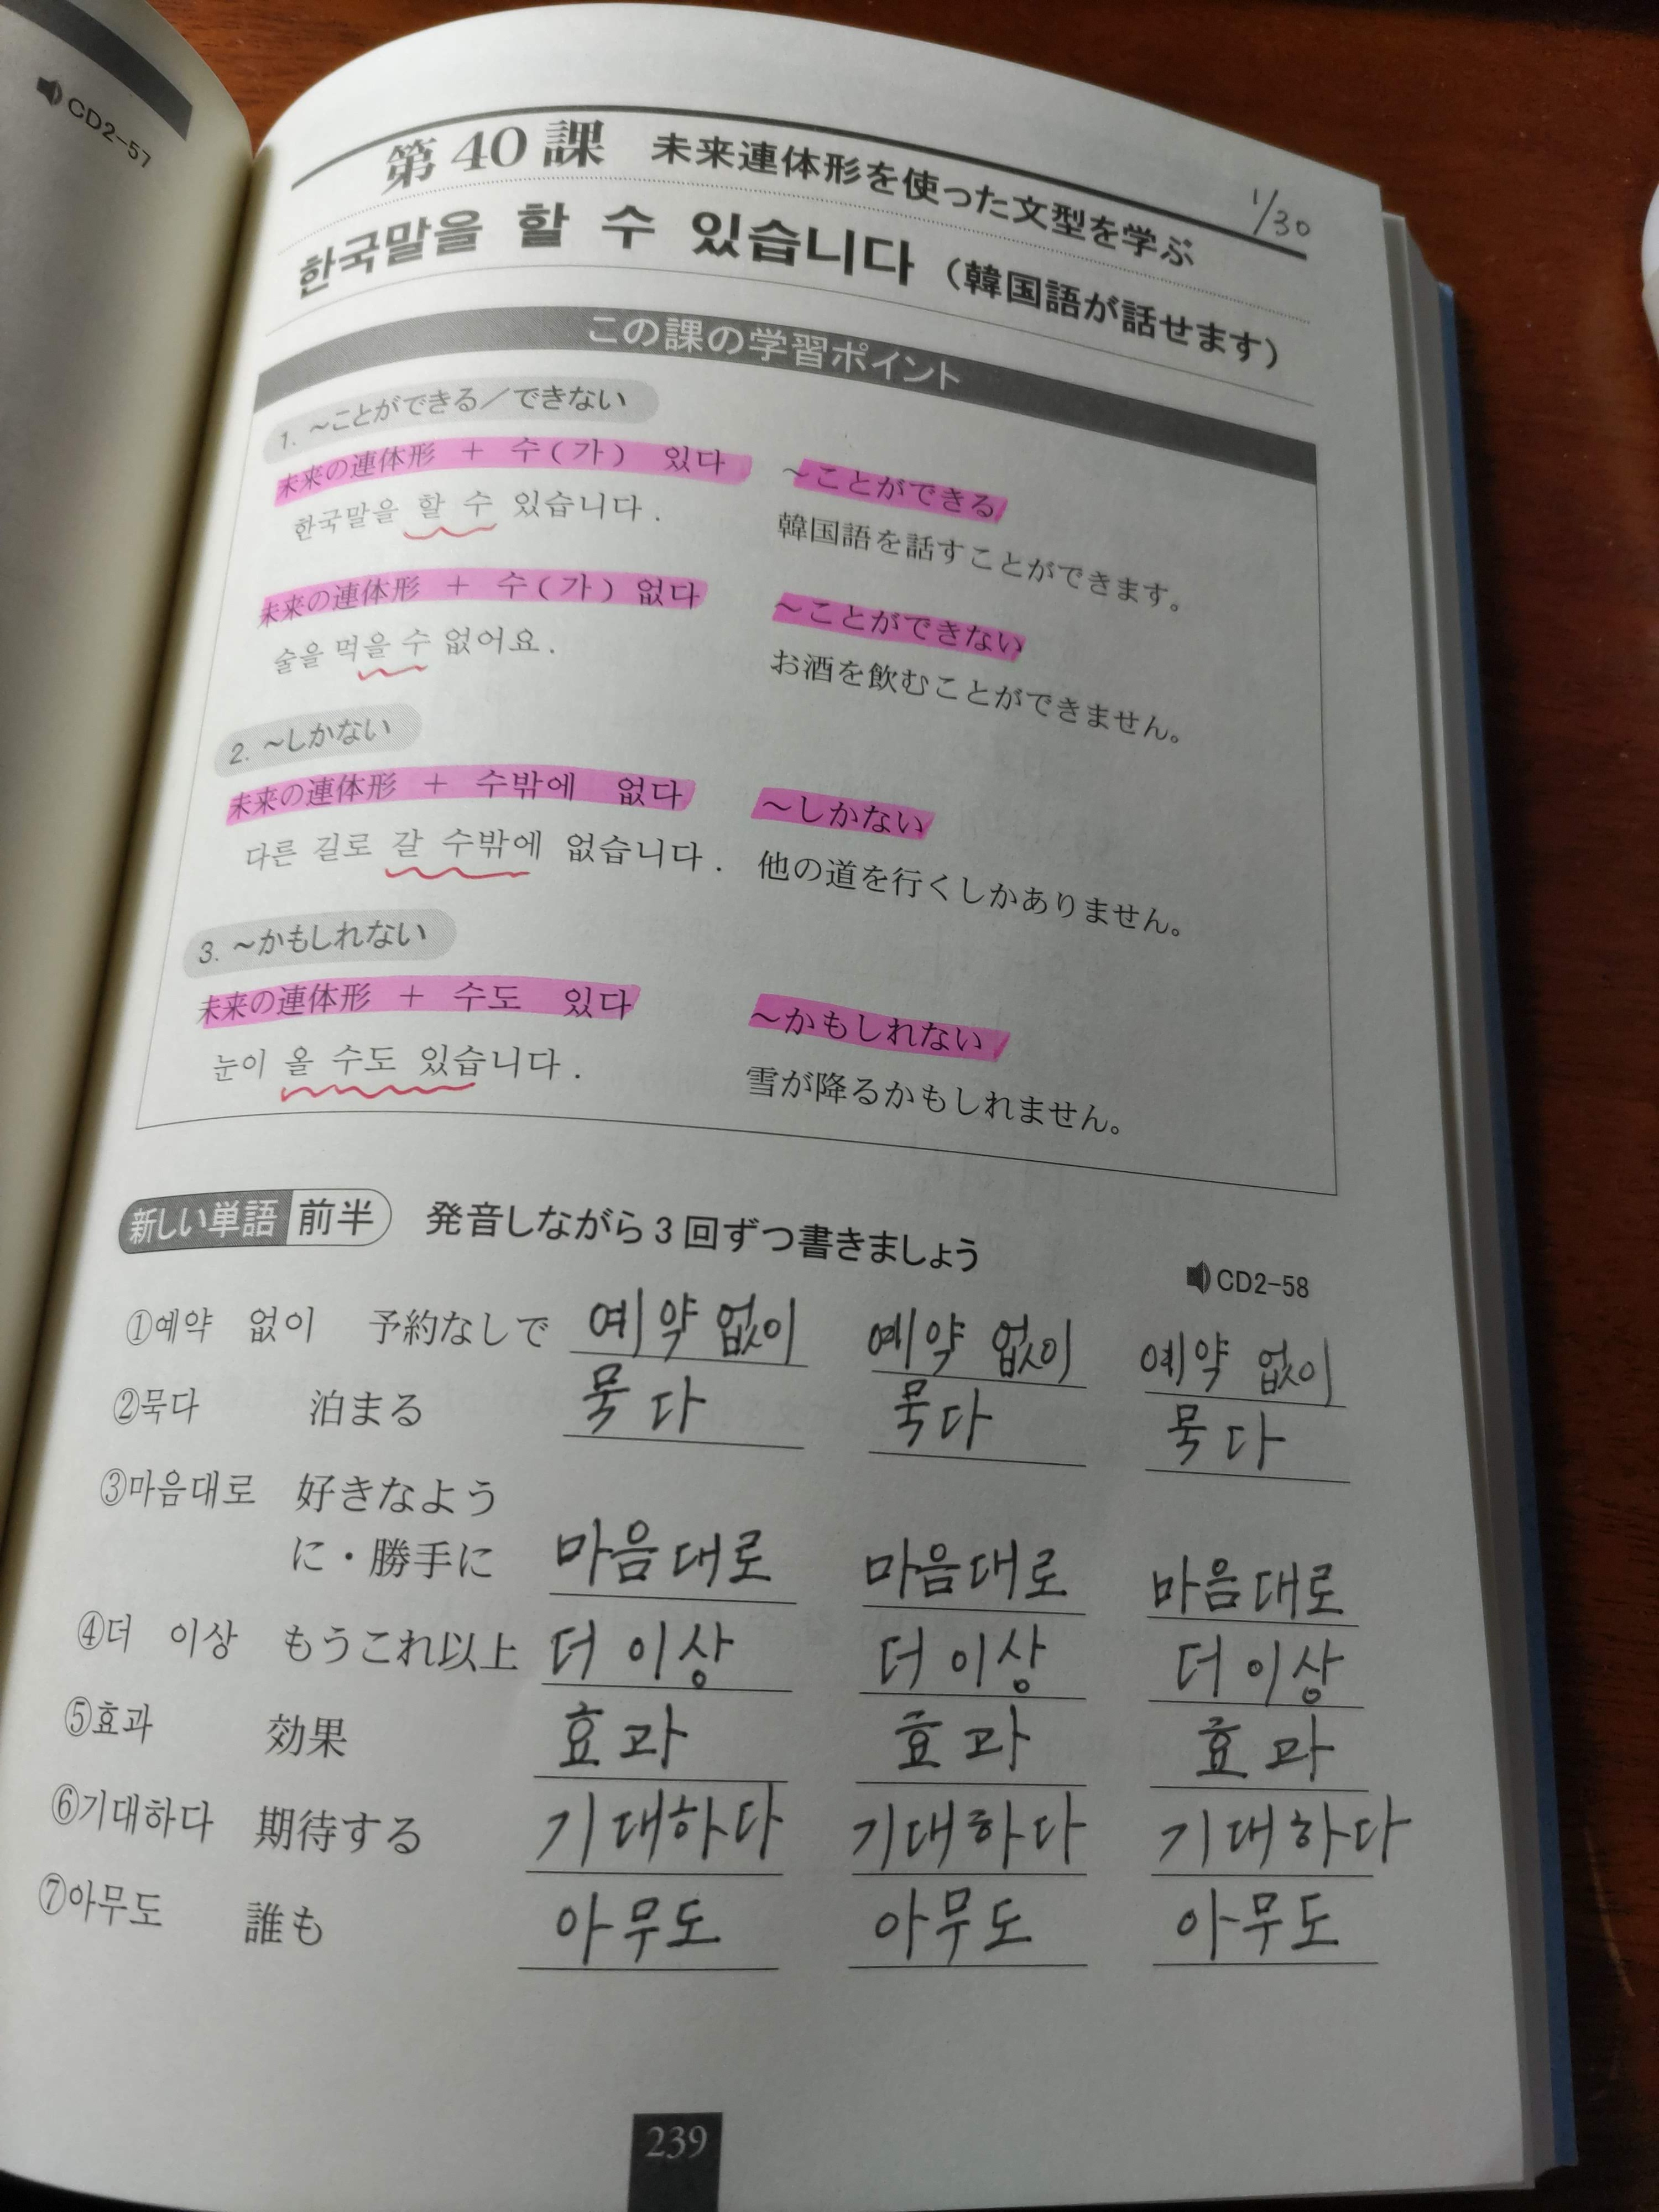 CD2-57
第40課 未来連体形を使った文型を学ぶ
1/30
한국말을 할 수 있습니다 (韓国語が話せます)
この課の学習ポイント
1. ~ことができる/できない
未来の連体形 + 수(가) 있다 ~ことができる
한국말을 할 수 있습니다. 韓国語を話すことができます。
未来の連体形 + 수(가) 없다 ~ことができない
술을 먹을 수 없어요. お酒を飲むことができません。
2. ~しかない
未来の連体形 + 수밖에 없다 ~しかない
다른 길로 갈 수밖에 없습니다. 他の道を行くしかありません。
3. ~かもしれない
未来の連体形 + 수도 있다 ~かもしれない
눈이 올 수도 있습니다. 雪が降るかもしれません。
新しい単語 前半 発音しながら3回ずつ書きましょう
CD2-58
①예약 없이 予約なしで 예약 없이 예약 없이 예약 없이
②묵다 泊まる 묵다 묵다 묵다
③마음대로 好きなよう
に・勝手に 마음대로 마음대로 마음대로
④더 이상 もうこれ以上 더 이상 더 이상 더 이상
⑤효과 効果 효과 효과 효과
⑥기대하다 期待する 기대하다 기대하다 기대하다
⑦아무도 誰も 아무도 아무도 아무도
239